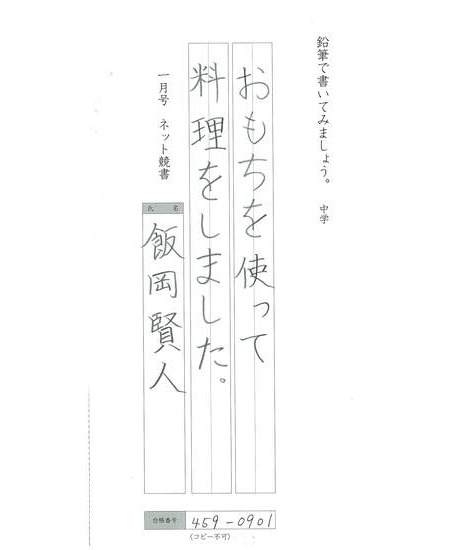 鉛筆で書いてみましょう。 中学
おもちを使って
料理をしました。
一月号 ネット競書
氏名
飯岡賢人
合格番号 459-0901
(コピー不可)